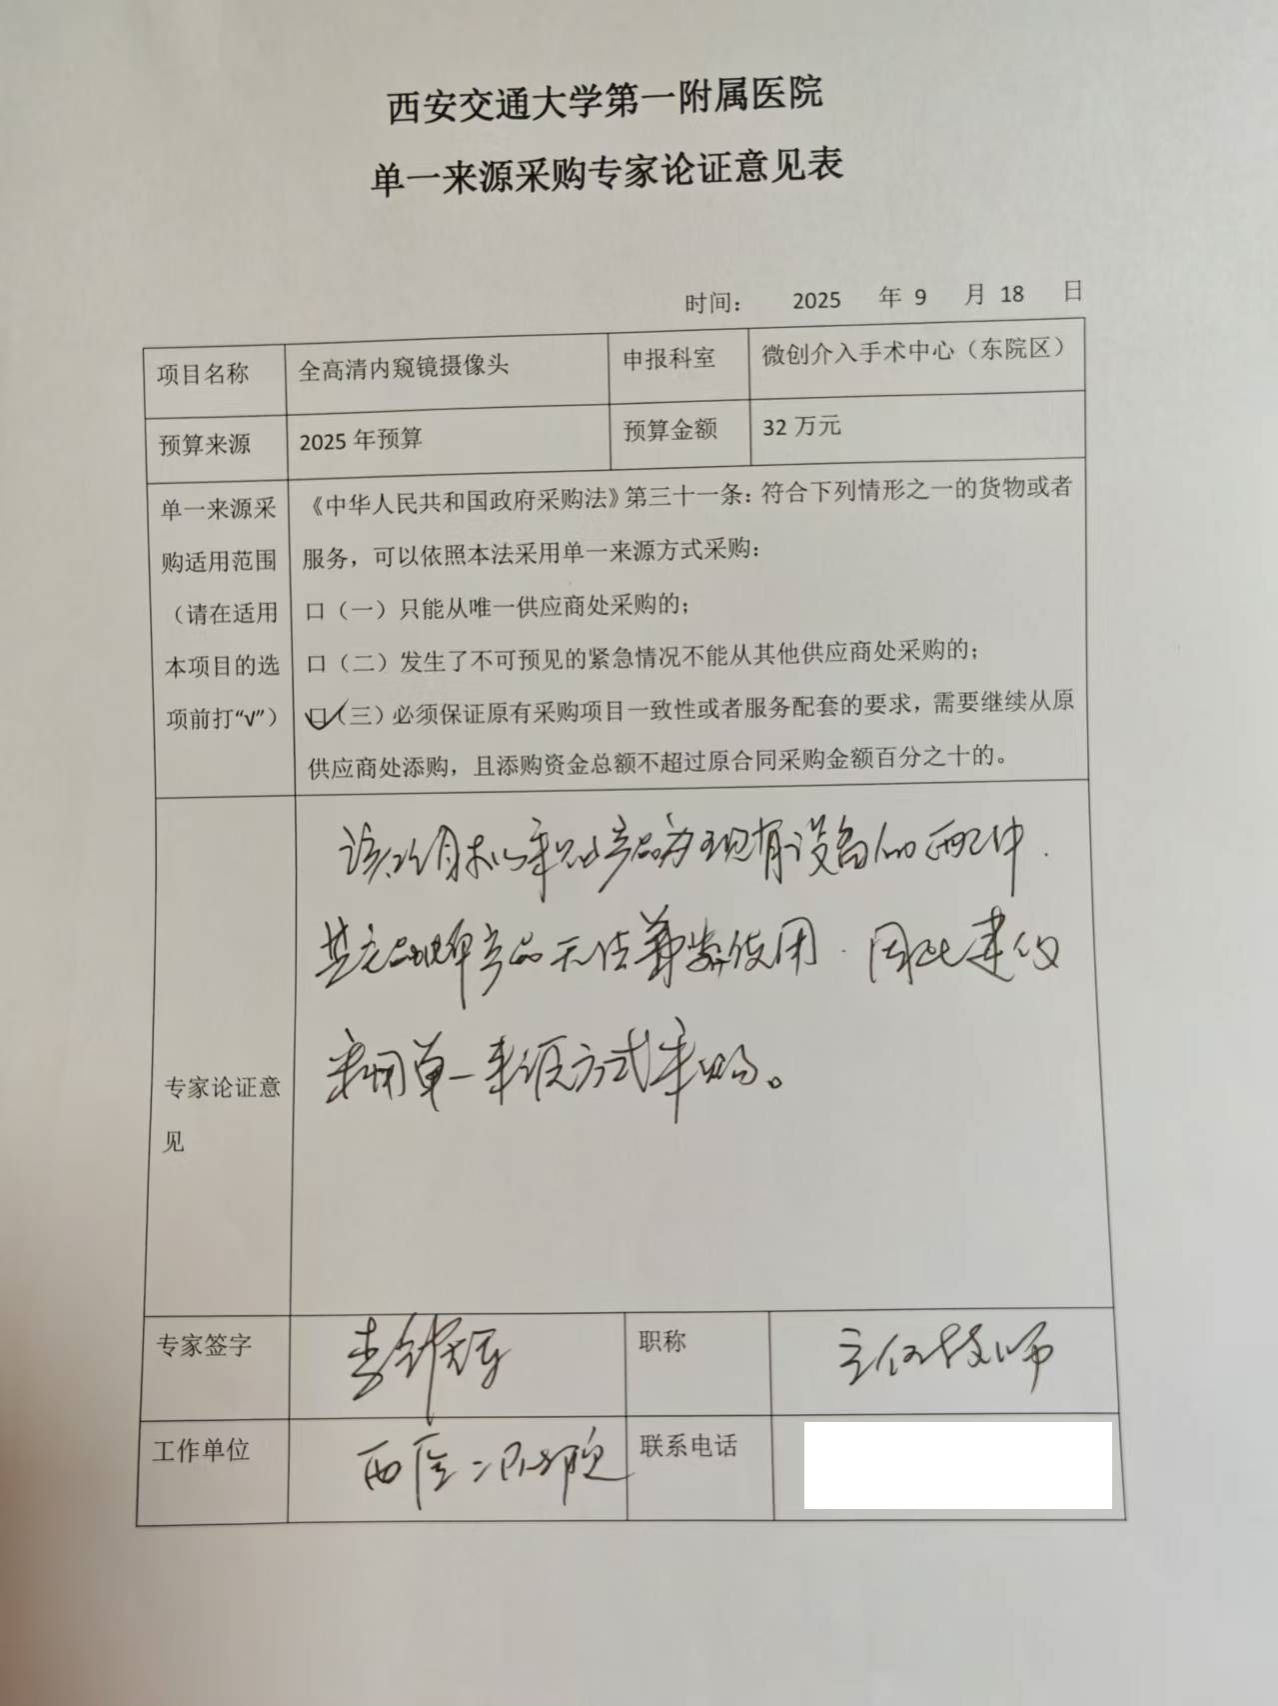 西安交通大学第一附属医院
单一来源采购专家论证意见表
时间： 2025 年 9 月 18 日
项目名称 全高清内窥镜摄像头 申报科室 微创介入手术中心（东院区）
预算来源 2025 年预算 预算金额 32 万元
单一来源采购适用范围（请在适用本项目的选项前打“√”）
《中华人民共和国政府采购法》第三十一条：符合下列情形之一的货物或者
服务，可以依照本法采用单一来源方式采购：
口（一）只能从唯一供应商处采购的；
口（二）发生了不可预见的紧急情况不能从其他供应商处采购的；
☑（三）必须保证原有采购项目一致性或者服务配套的要求，需要继续从原
供应商处添购，且添购资金总额不超过原合同采购金额百分之十的。
专家论证意见
该项目拟采购产品为现有设备的配件．
其它品牌产品无法兼容使用．因此建议
采用单一来源方式采购。
专家签字 李 职称 主任技师
工作单位 西医二附院 联系电话